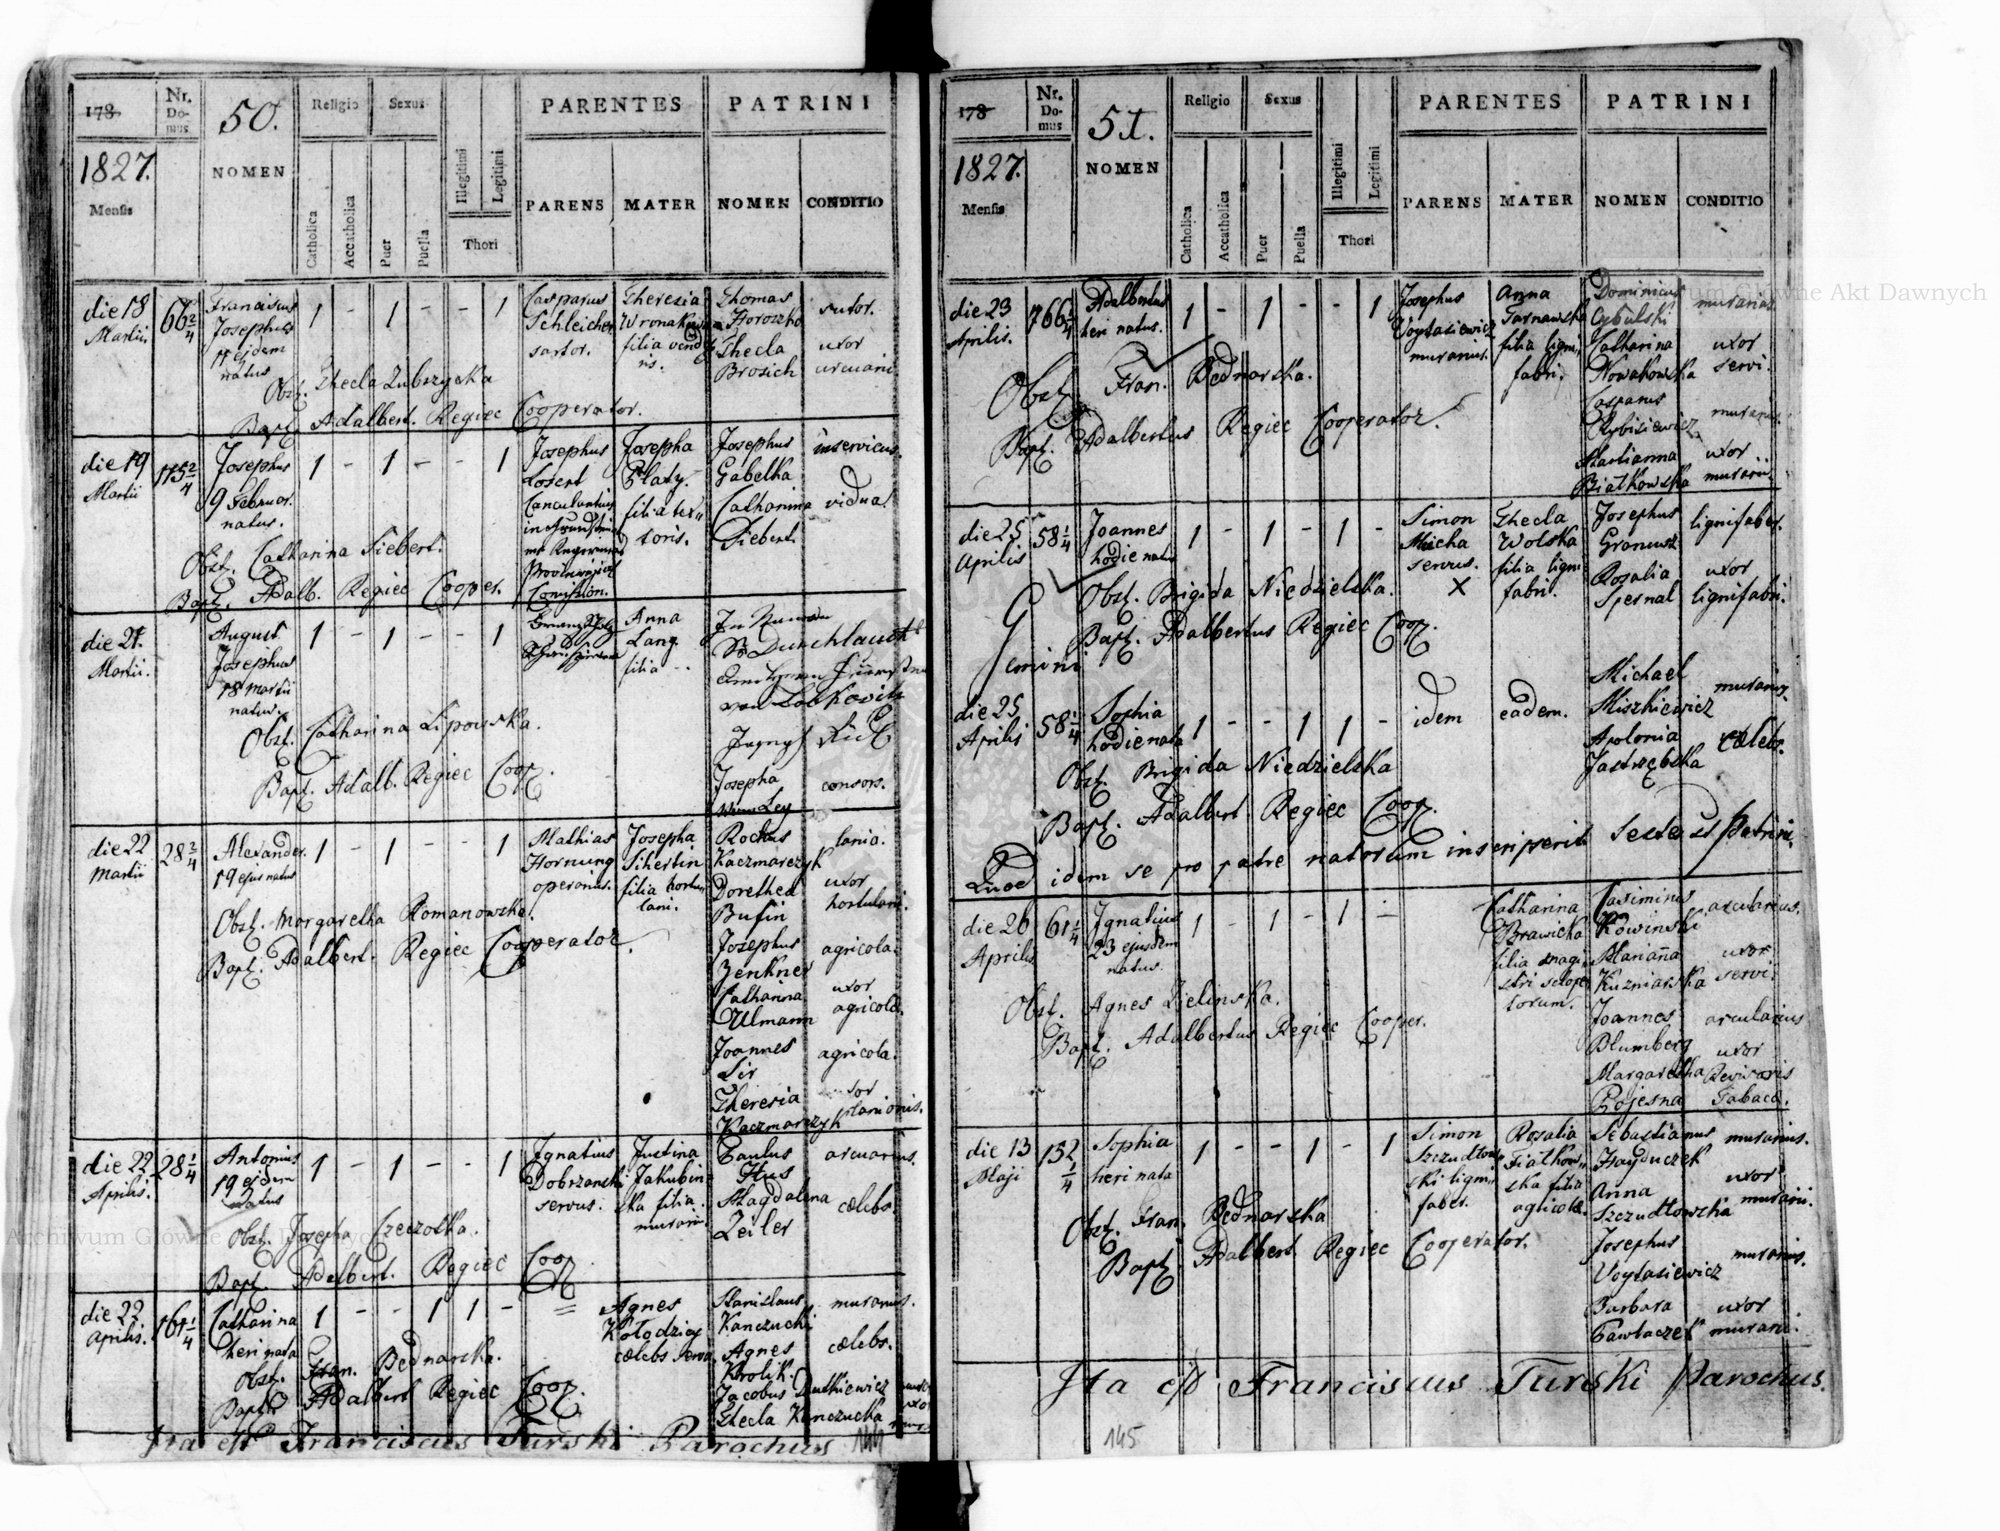 178
Nr. Domus
50.
Religio
Sexus
PARENTES
PATRINI
1827.
Mensis
NOMEN
Catholica
Accatholica
Puer
Puella
Illegitimi
Legitimi
Thori
PARENS
MATER
NOMEN
CONDITIO
die 18 Martii
66 2/4
Franciscus
Josephus
17 ejdem
natus
1 - 1 - - 1
Casparus
Schleicher
sartor.
Theresia
filia
Thomas
Horoszko
sutor.
Thecla
Brosich
uxor
Obst. Thecla Zubrzycka
Bapt. Adalbert. Regiec Cooperator.
die 19 Martii
115 2/4
Josephus
9 Februar.
natus.
1 - 1 - - 1
Josephus
Losert
Josepha
Platy.
filia tex-
toris.
Josephus
Gabelka
inservicus.
Catharina
Siebert.
vidua.
Obst. Catharina Siebert.
Bapt. Adalb. Regiec Cooper.
die 21. Martii.
August
Josephus
18 Martii
natus.
1 - 1 - - 1
Anna
Lang
filia - -
Durchlaucht
von Lobkovitz
Josepha
consors.
Obst. Catharina Lipowska.
Bapt. Adalb. Regiec Coop.
die 22 Martii
28 3/4
Alexander
19 ejus natus
1 - 1 - - 1
Mathias
Hornung
operarius.
Josepha
filia hortu-
lani.
Rochus
Kaczmarczyk
lanio.
Dorothea
Bufin
uxor
hortulani.
Josephus
Zenkner
agricola.
Catharina
Ulmann
uxor
agricolæ.
Joannes
Sir
agricola.
Theresia
Kaczmarczyk
uxor
lanionis.
Obst. Margaretha Romanowska.
Bapt. Adalbert. Regiec Cooperator.
die 22 Aprilis.
28 1/4
Antonius
19 ejdem
natus
1 - 1 - - 1
Ignatius
Dobrzanski
servus.
Justina
Jakubin-
ska filia
murarii.
Paulus
Hus
arcuarius.
Magdalena
Zeiler
cælebs.
Obst. Josepha Czeczotka.
Bapt. Adalbert. Regiec Coop.
die 22. Aprilis.
161 1/4
Catharina
heri nata
1 - - 1 1 -
=
Agnes
Kołodziey
cælebs serva.
Stanislaus
Kanczucki
murarius.
Agnes
Krolik.
cælebs.
Jacobus Dutkiewicz
Thecla Kanczucka
Obst. Fran. Bednarska.
Bapt. Adalbert Regiec Coop.
Ita est Franciscus Turski Parochus
144
178
Nr. Domus
51.
Religio
Sexus
PARENTES
PATRINI
1827.
Mensis
NOMEN
Catholica
Accatholica
Puer
Puella
Illegitimi
Legitimi
Thori
PARENS
MATER
NOMEN
CONDITIO
die 23 Aprilis.
766 1/4
Adalbertus
heri natus.
1 - 1 - - 1
Josephus
Voytasiewicz
murarius.
Anna
Tarnawska
filia ligni-
fabri.
Dominicus
Cybulski
murarius
Catharina
Nowakowska
uxor
servi.
Casparus
Rybisiewicz
murarius.
Marianna
Białkowska
uxor
murarii.
Obst. Fran. Bednarska.
Bapt. Adalbertus Regiec Cooperator.
die 25 Aprilis
58 1/4
Joannes
hodie natus
1 - 1 - 1 -
Simon
Micha
servus.
X
Thecla
Wolska
filia ligni-
fabri.
Josephus
lignifaber.
Rosalia
Spesnal
uxor
lignifabri.
Obst. Brigida Niedzielska.
Bapt. Adalbertus Regiec Coop.
Gemini
die 25 Aprilis
58 1/4
Sophia
hodie nata
1 - - 1 1 -
idem
eadem.
Michael
Miszkiewicz
murarius.
Apolonia
Jastrzębska
cælebs.
Obst. Brigida Niedzielska
Bapt. Adalbert. Regiec Coop.
Quod idem se pro patre natorum inscripserit testes st. Patrini.
die 26 Aprilis
61 1/4
Ignatius
23 ejusdem
natus.
1 - 1 - 1 -
Catharina
Brawicka
filia magi-
stri sclope-
torum.
Casimirus
Rowinski
arcularius.
Marianna
Kuzniarska
uxor
servi.
Joannes
Blumberg
arcularius
Margaretha
Rojesna
uxor
Revisoris
Tabaco.
Obst. Agnes Zielinska.
Bapt. Adalbertus Regiec Cooper.
die 13 Maji
152 1/4
Sophia
heri nata
1 - - 1 - 1
Simon
Szczudłow-
ski ligni-
faber.
Rosalia
Fiatkow-
ska filia
agricolæ.
Sebastianus
Hayduczek
murarius.
Anna
Szczudłowska
uxor
murarii.
Josephus
Voytasiewicz
murarius.
Barbara
Pawlaczek
uxor
murarii.
Obst. Fran. Bednarska
Bapt. Adalbert. Regiec Cooperator.
Ita est Franciscus Turski Parochus.
145
Archiwum Główne Akt Dawnych
Archiwum Główne Akt Dawnych